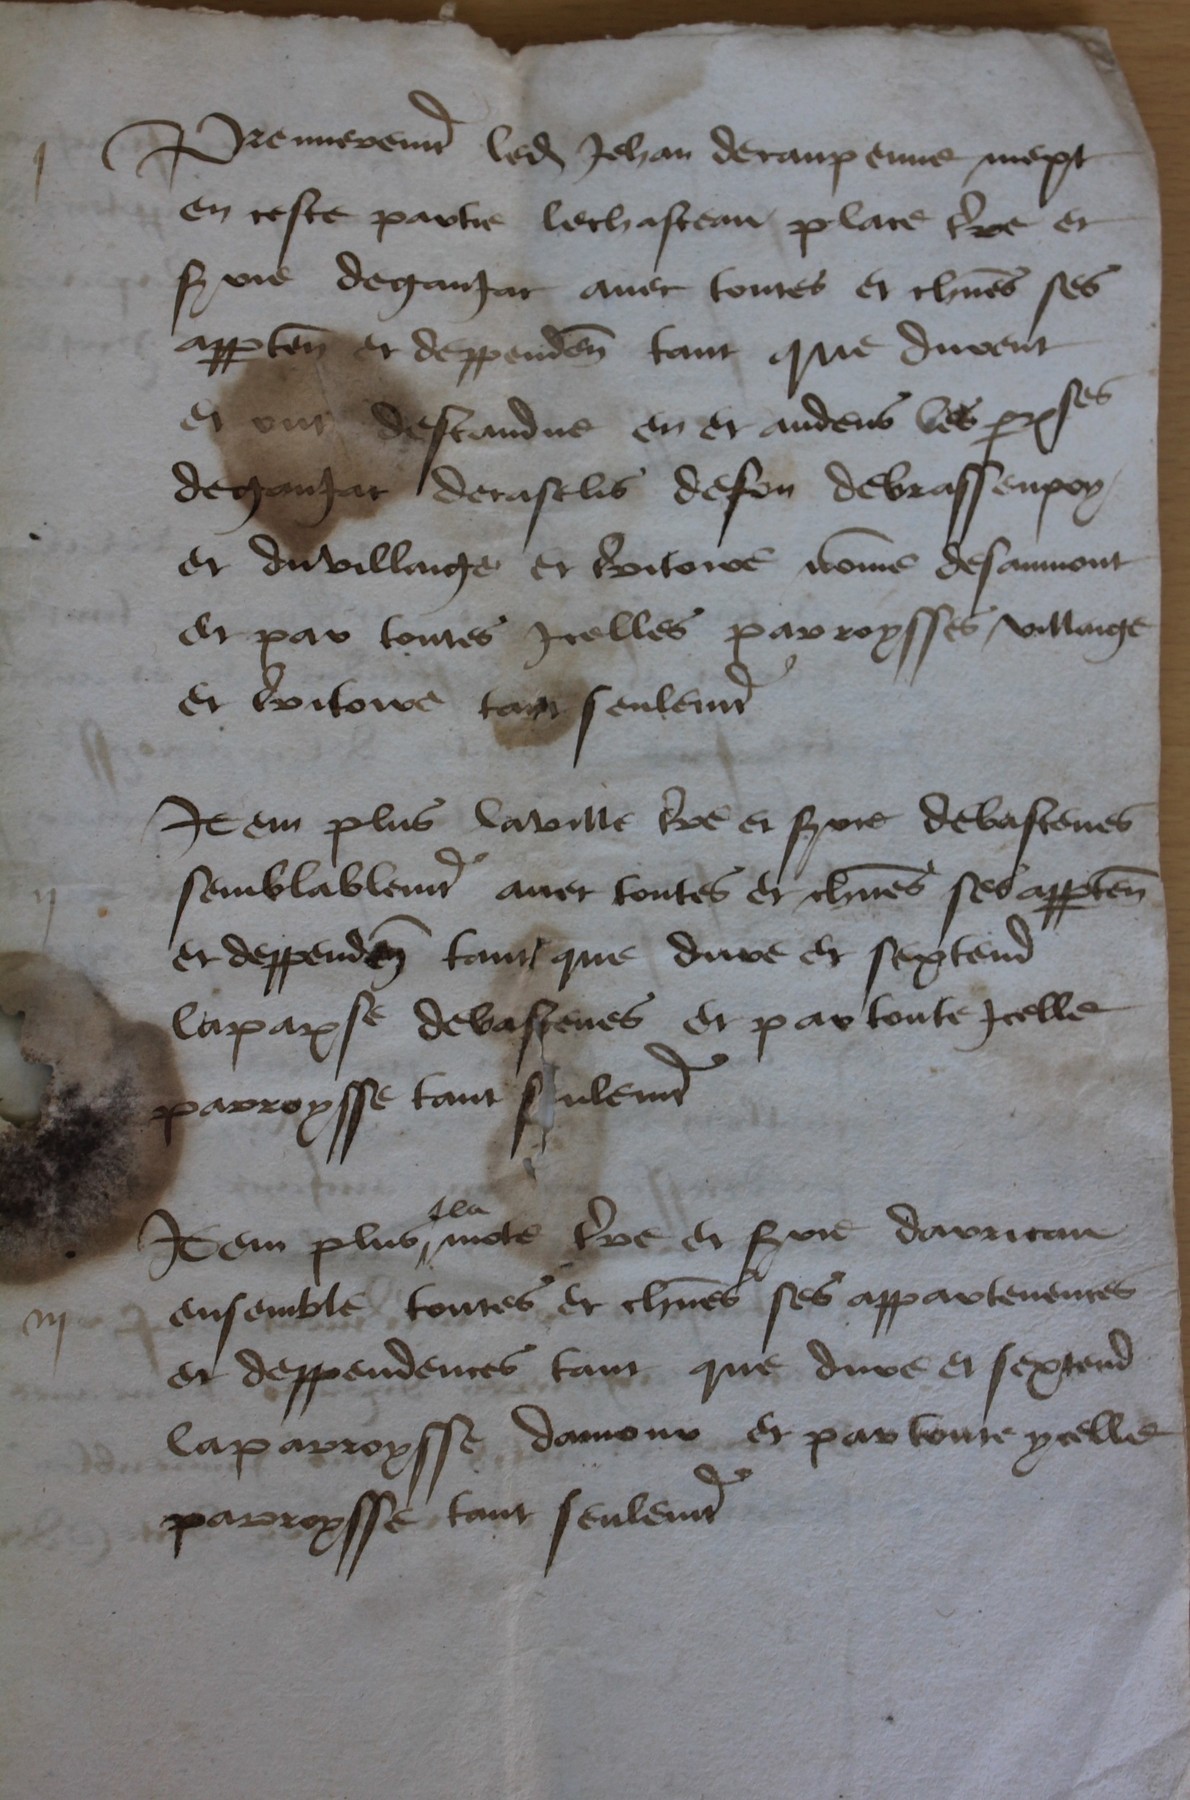 j Premierement led Jehan de Caupenne mect
en ceste partie le chasteau place tre et
sgrie de Gaujac avec toutes et chunes ses
apptens et deppenden tant que durent
et ont destandue en et audens les proses
de Gaujac de Castelis de fon de Brassenpoy
et du villaige et tritoire nome de Saumont
et par toutes Jcelles parroysses villaige
et tritoire tant seulemt
ij Jtem plus la ville tre et sgrie de Bastenes
semblablemt avec toutes et chunes ses apptens
et deppenden tant que dure et sextend
la parose de Bastenes et par toute Jcelle
parroysse tant seulemt
iij Jtem plus la mote tre et sgrie d'Arricau
ensemble toutes et chunes ses appartenences
et deppendences tant que dure et sextend
la parroysse damour et par toute ycelle
parroysse tant seulemt